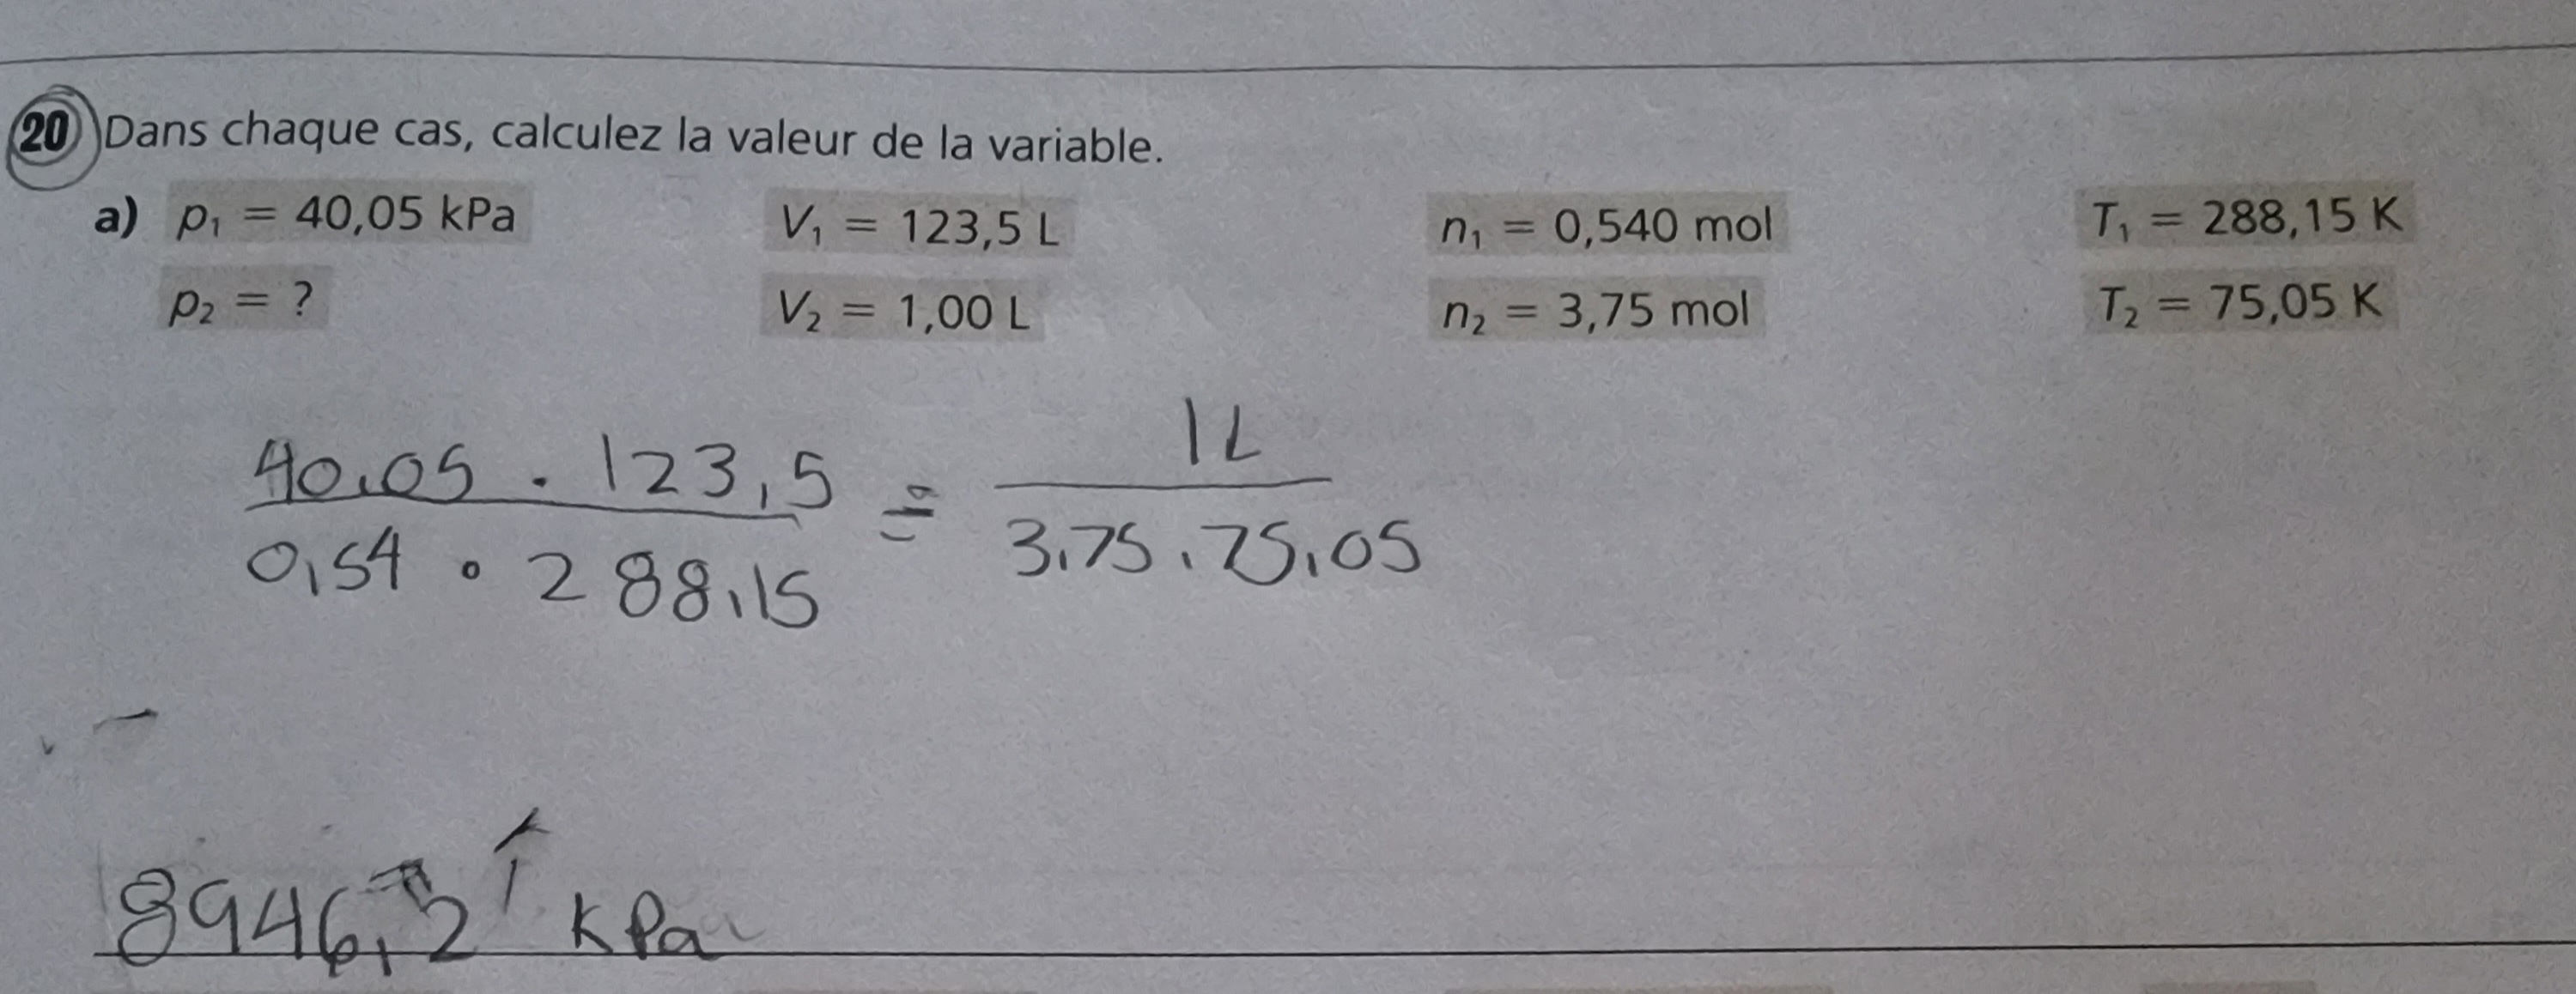 20 Dans chaque cas, calculez la valeur de la variable.
a) p₁ = 40,05 kPa V₁ = 123,5 L n₁ = 0,540 mol T₁ = 288,15 K
p₂ = ? V₂ = 1,00 L n₂ = 3,75 mol T₂ = 75,05 K
40,05 · 123,5 = 1L
0,54 · 288,15 3,75 · 75,05
8946, kPa